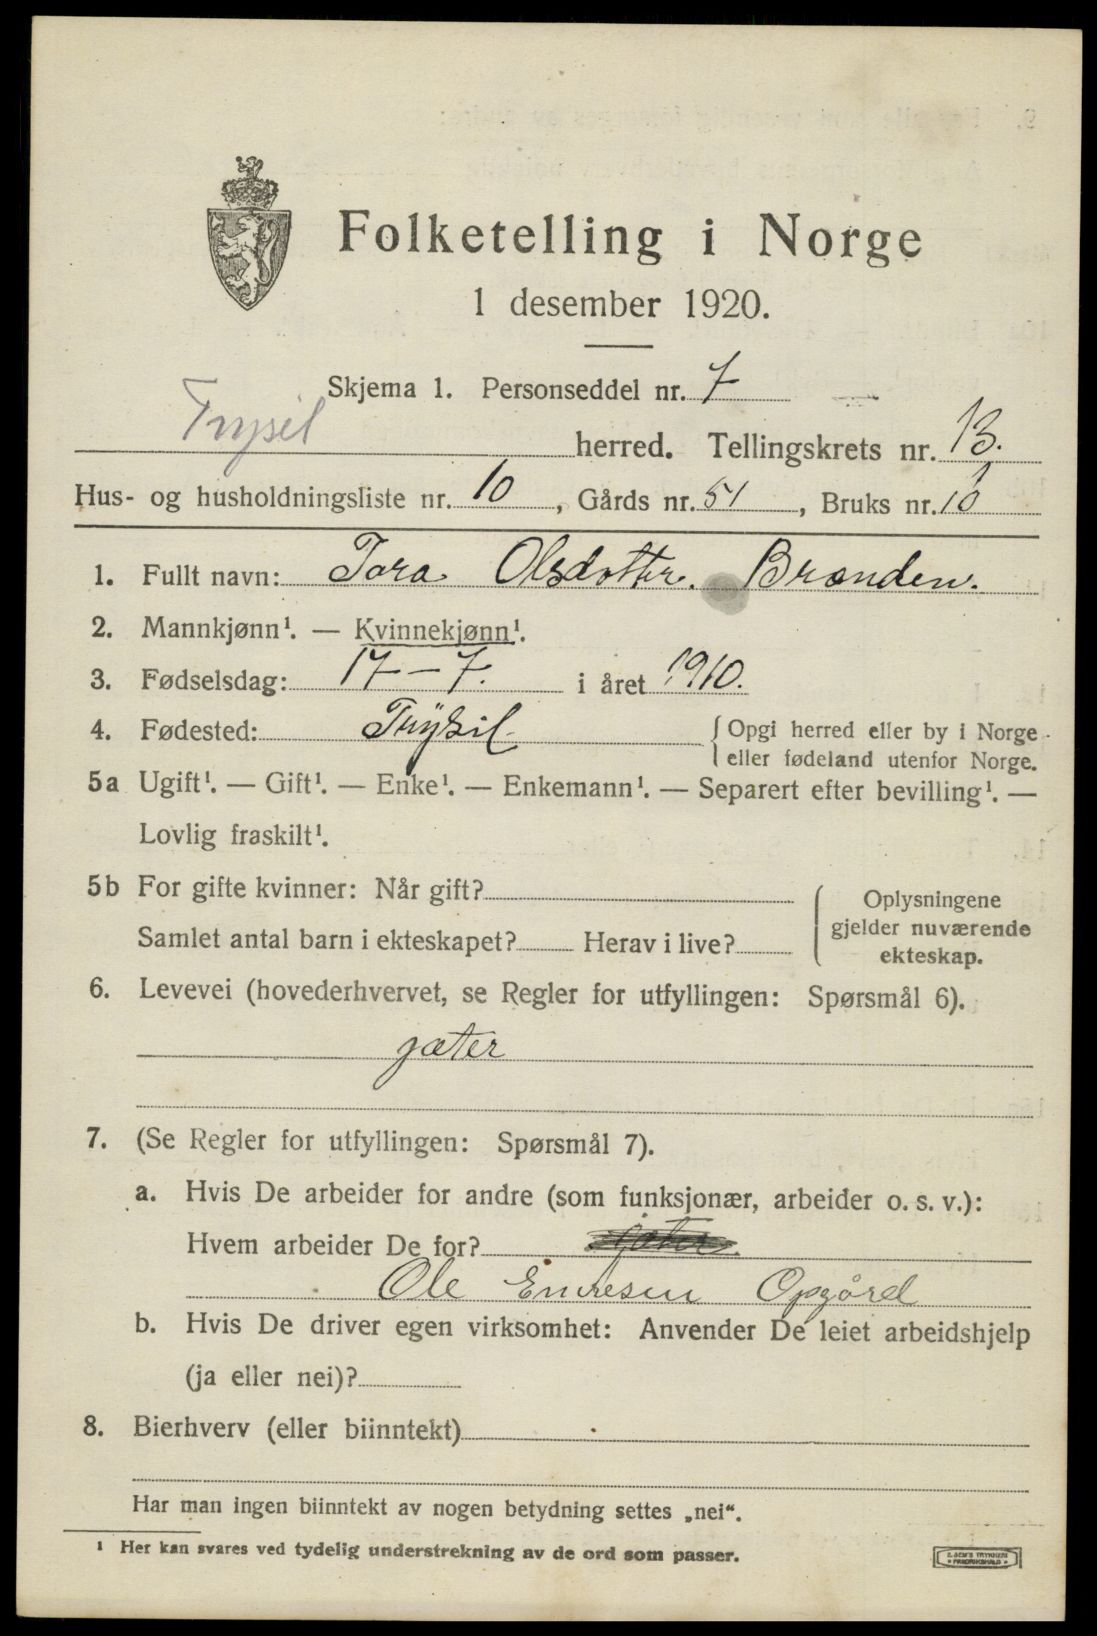 Folketelling i Norge
1 desember 1920.
Skjema 1. Personseddel nr. 7
Trysil herred. Tellingskrets nr. 13.
Hus- og husholdningsliste nr. 10, Gårds nr. 51, Bruks nr. 10
1. Fullt navn: Tora Olsdotter. Brænden.
2. Mannkjønn¹. — Kvinnekjønn¹.
3. Fødselsdag: 17 – 7. i året 1910.
4. Fødested: Trysil { Opgi herred eller by i Norge
eller fødeland utenfor Norge.
5a Ugift¹. — Gift¹. — Enke¹. — Enkemann¹. — Separert efter bevilling¹. —
Lovlig fraskilt¹.
5b For gifte kvinner: Når gift?
Samlet antal barn i ekteskapet? Herav i live?
Oplysningene
gjelder nuværende
ekteskap.
6. Levevei (hovederhvervet, se Regler for utfyllingen: Spørsmål 6).
gæter
7. (Se Regler for utfyllingen: Spørsmål 7).
a. Hvis De arbeider for andre (som funksjonær, arbeider o. s. v.):
Hvem arbeider De for?
Ole Embresen Opgård
b. Hvis De driver egen virksomhet: Anvender De leiet arbeidshjelp
(ja eller nei)?
8. Bierhverv (eller biinntekt)
Har man ingen biinntekt av nogen betydning settes „nei“.
¹ Her kan svares ved tydelig understrekning av de ord som passer.